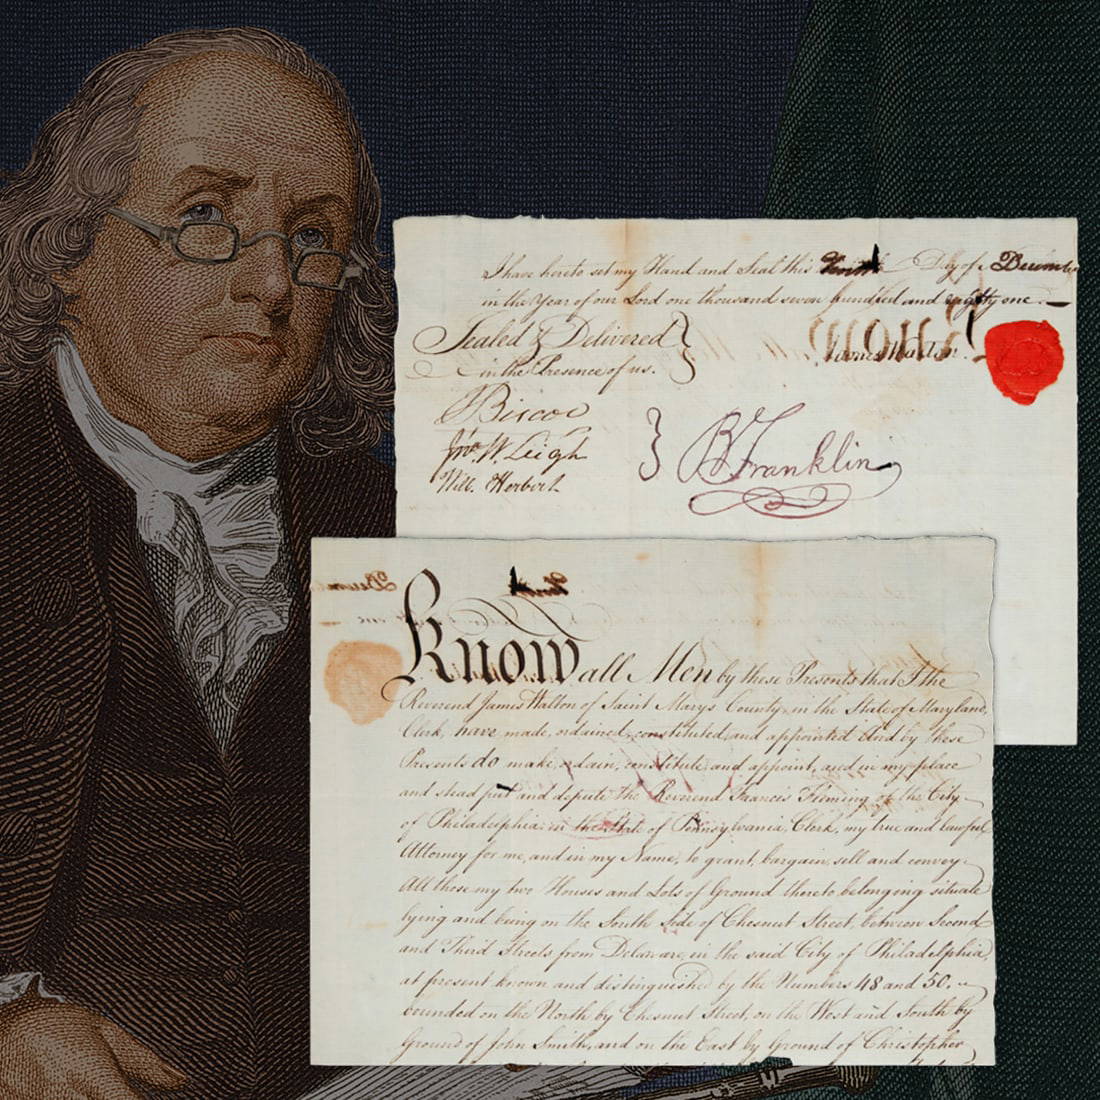 I have hereto set my Hand and Seal this Tenth Day of Decemb
in the Year of our Lord one thousand seven hundred and eighty one.
Sealed & Delivered
in the Presence of us.
James Walton.
J Biscoe
Jno. W. Leigh
Will. Herbert
B Franklin
Know all Men by these Presents that I the
Reverend James Walton of Saint Marys County in the State of Maryland,
Clerk, have made, ordained, constituted, and appointed And by these
Presents do make, ordain, constitute and appoint, and in my place
and stead put and depute the Reverend Francis Fleming of the City
of Philadelphia in the State of Pennsylvania, Clerk, my true and lawful
Attorney for me, and in my Name, to grant, bargain, sell and convey
All those my two Houses and Lots of Ground thereto belonging situate
lying and being on the South Side of Chesnut Street, between Second
and Third Streets from Delaware, in the said City of Philadelphia,
at present known and distinguished by the Numbers 48 and 50.
bounded on the North by Chesnut Street, on the West and South by
Ground of John Smith, and on the East by Ground of Christopher